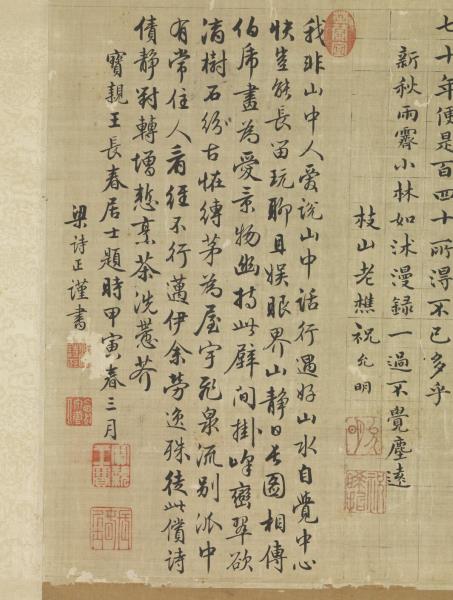 七十年便是百四十所得不已多乎
新秋雨霽小林如沐漫録一過不覺塵遠
枝山老樵祝允明
我非山中人愛說山中話行遇好山水自覺中心
快豈能長留玩聊且娛眼界山靜日長圖相傳
伯虎畫為愛景物幽持此壁間掛峰巒翠欲
滴樹石紛古怪縛茅為屋宇飛泉流別派中
有常住人看經不行邁伊余勞逸殊徒此償詩
債靜對轉增慙烹茶洗芥
寶親王長春居士題時甲寅春三月
梁詩正謹書